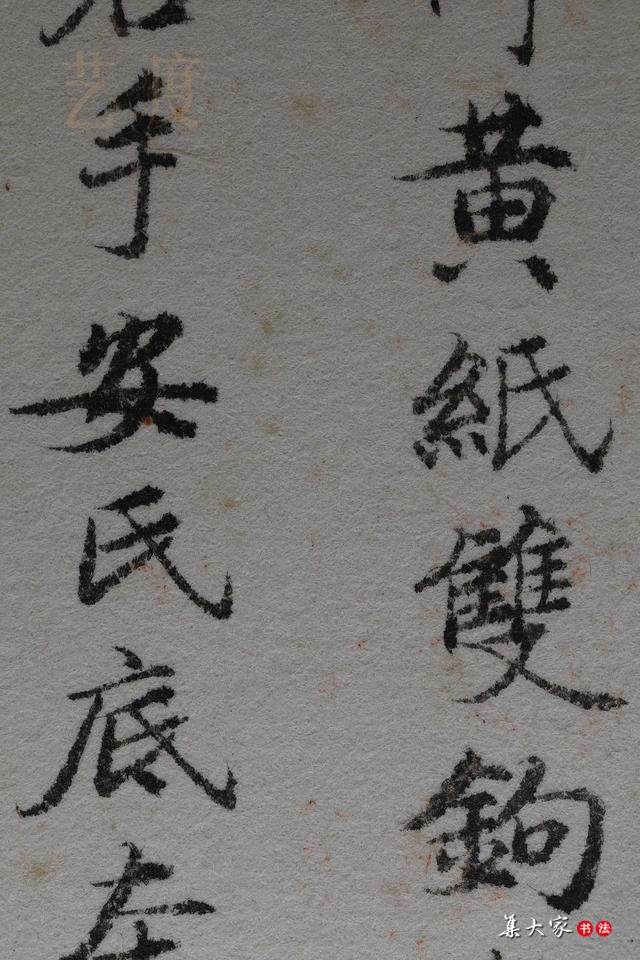 黄紙雙鉤
手安氏底本
艺度
集大家书法